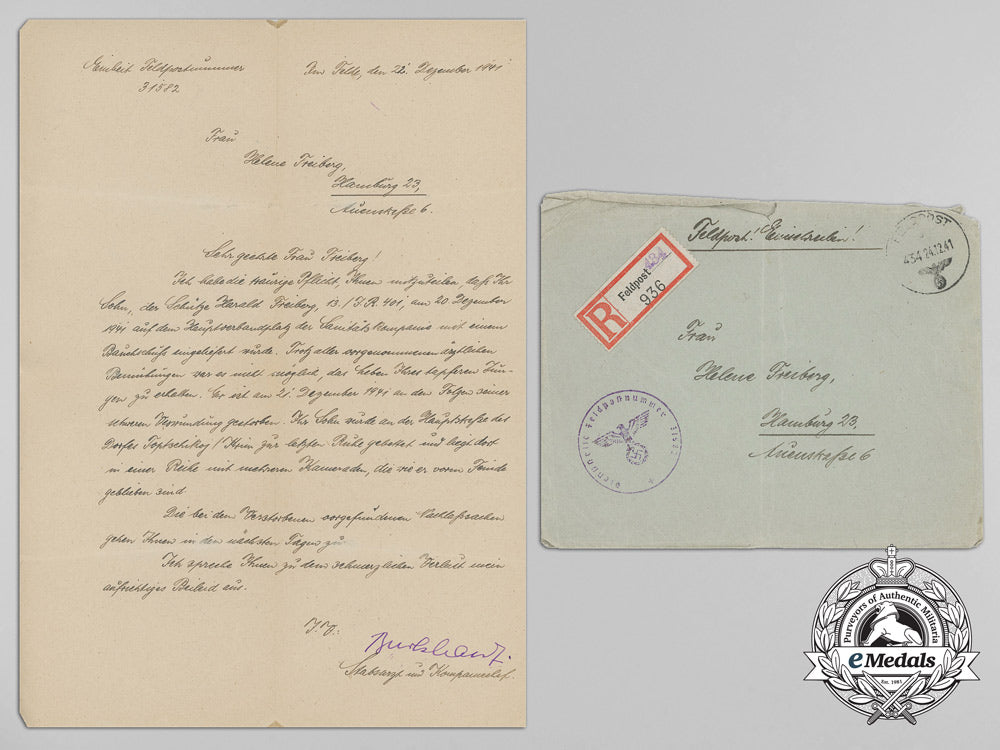 Einheit Feldpostnummer
31582
Im Felde, den 22. Dezember 1941
Frau
Helene Freiberg,
Hamburg 23,
Auenstraße 6.
Sehr geehrte Frau Freiberg!
Ich habe die traurige Pflicht, Ihnen mitzuteilen, daß Ihr
Sohn, der Schütze Harald Freiberg, 13./I.R. 401, am 20. Dezember
1941 auf dem Hauptverbandplatz der Sanitätskompanie mit einem
Bauchschuß eingeliefert wurde. Trotz aller vorgenommenen ärztlichen
Bemühungen war es nicht möglich, das Leben Ihres tapferen Jun-
gen zu erhalten. Er ist am 21. Dezember 1941 an den Folgen seiner
schweren Verwundung gestorben. Ihr Sohn wurde an der Hauptstraße des
Dorfes / Krim zur letzten Ruhe gebettet und liegt dort
in einer Reihe mit mehreren Kameraden, die wie er vorm Feinde
geblieben sind.
Die bei dem Verstorbenen vorgefundenen Nachlaßsachen
gehen Ihnen in den nächsten Tagen zu.
Ich spreche Ihnen zu dem schmerzlichen Verlust mein
aufrichtiges Beileid aus.
I.V.:
Burkhardt.
Stabsarzt und Kompaniechef.
Feldpost! Einschreiben!
FELDPOST
434 24.12.41
R
Feldpost 434
936
Frau
Helene Freiberg,
Hamburg 23,
Auenstraße 6
Dienststelle Feldpostnummer 31582
Purveyors of Authentic Militaria
eMedals
Est. 1981